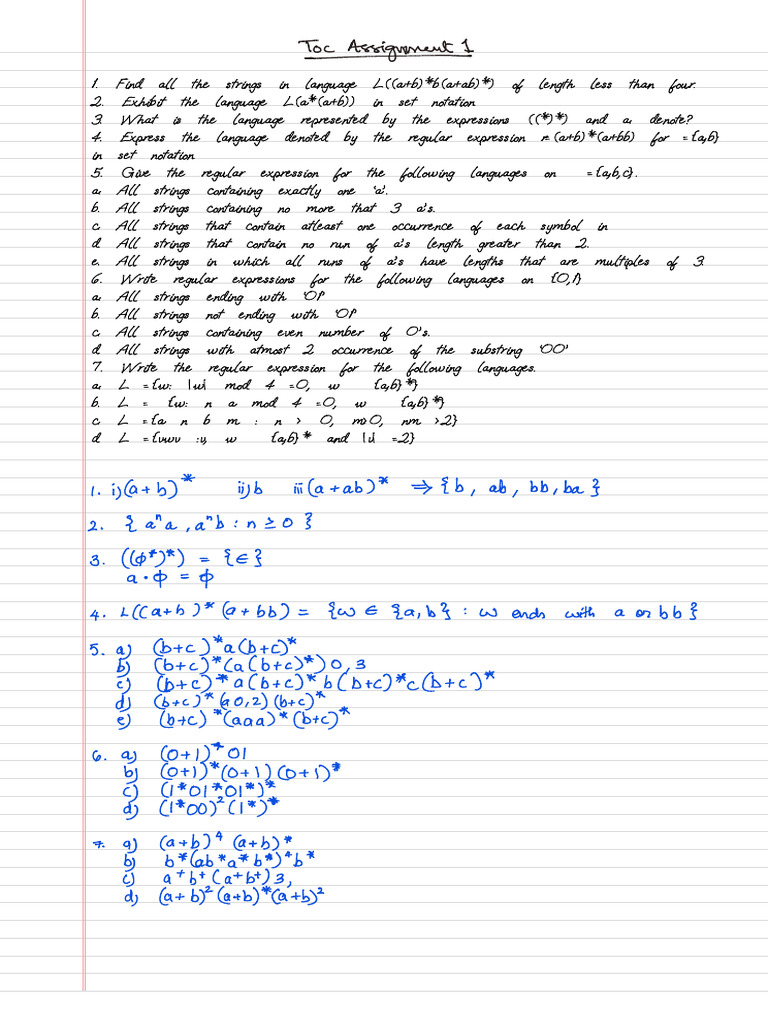 Toc Assignment 1
1. Find all the strings in language L((a+b)*b(a+ab)*) of length less than four.
2. Exhibit the language L(a*(a+b)) in set notation
3. What is the language represented by the expressions ((*)*) and a. denote?
4. Express the language denoted by the regular expression r= (a+b)*(a+bb) for ={a,b}
in set notation
5. Give the regular expression for the following languages on ={a,b,c}.
a. All strings containing exactly one 'a'.
b. All strings containing no more that 3 a's.
c. All strings that contain atleast one occurrence of each symbol in
d. All strings that contain no run of a's length greater than 2.
e. All strings in which all runs of a's have lengths that are multiples of 3.
6. Write regular expressions for the following languages on {0,1}
a. All strings ending with '01'
b. All strings not ending with '01'
c. All strings containing even number of 0's.
d. All strings with atmost 2 occurrence of the substring '00'
7. Write the regular expression for the following languages.
a. L ={w: |w| mod 4 =0, w {a,b}*}
b. L = {w: n a mod 4 =0, w {a,b}*}
c. L ={a n b m : n > 0, m>0, nm >2}
d. L ={vwv :v, w {a,b}* and |v| =2}
1. i)(a+b)* ii)b iii(a+ab)* ⇒ {b, ab, bb, ba}
2. {aⁿa, aⁿb : n ≥ 0}
3. ((ϕ*)*) = {∈}
a · ϕ = ϕ
4. L((a+b)*(a+bb) = {w ∈ {a,b} : w ends with a or bb}
5. a) (b+c)*a(b+c)*
b) (b+c)*(a(b+c)*)0,3
c) (b+c)*a(b+c)*b(b+c)*c(b+c)*
d) (b+c)*(a0,2)(b+c)*
e) (b+c)*(aaa)*(b+c)*
6. a) (0+1)*01
b) (0+1)*(0+1)(0+1)*
c) (1*01*01*)*
d) (1*00)²(1*)*
7. a) (a+b)⁴(a+b)*
b) b*(ab*a*b*)⁴b*
c) a⁺b⁺(a⁺b⁺)3,
d) (a+b)²(a+b)*(a+b)²